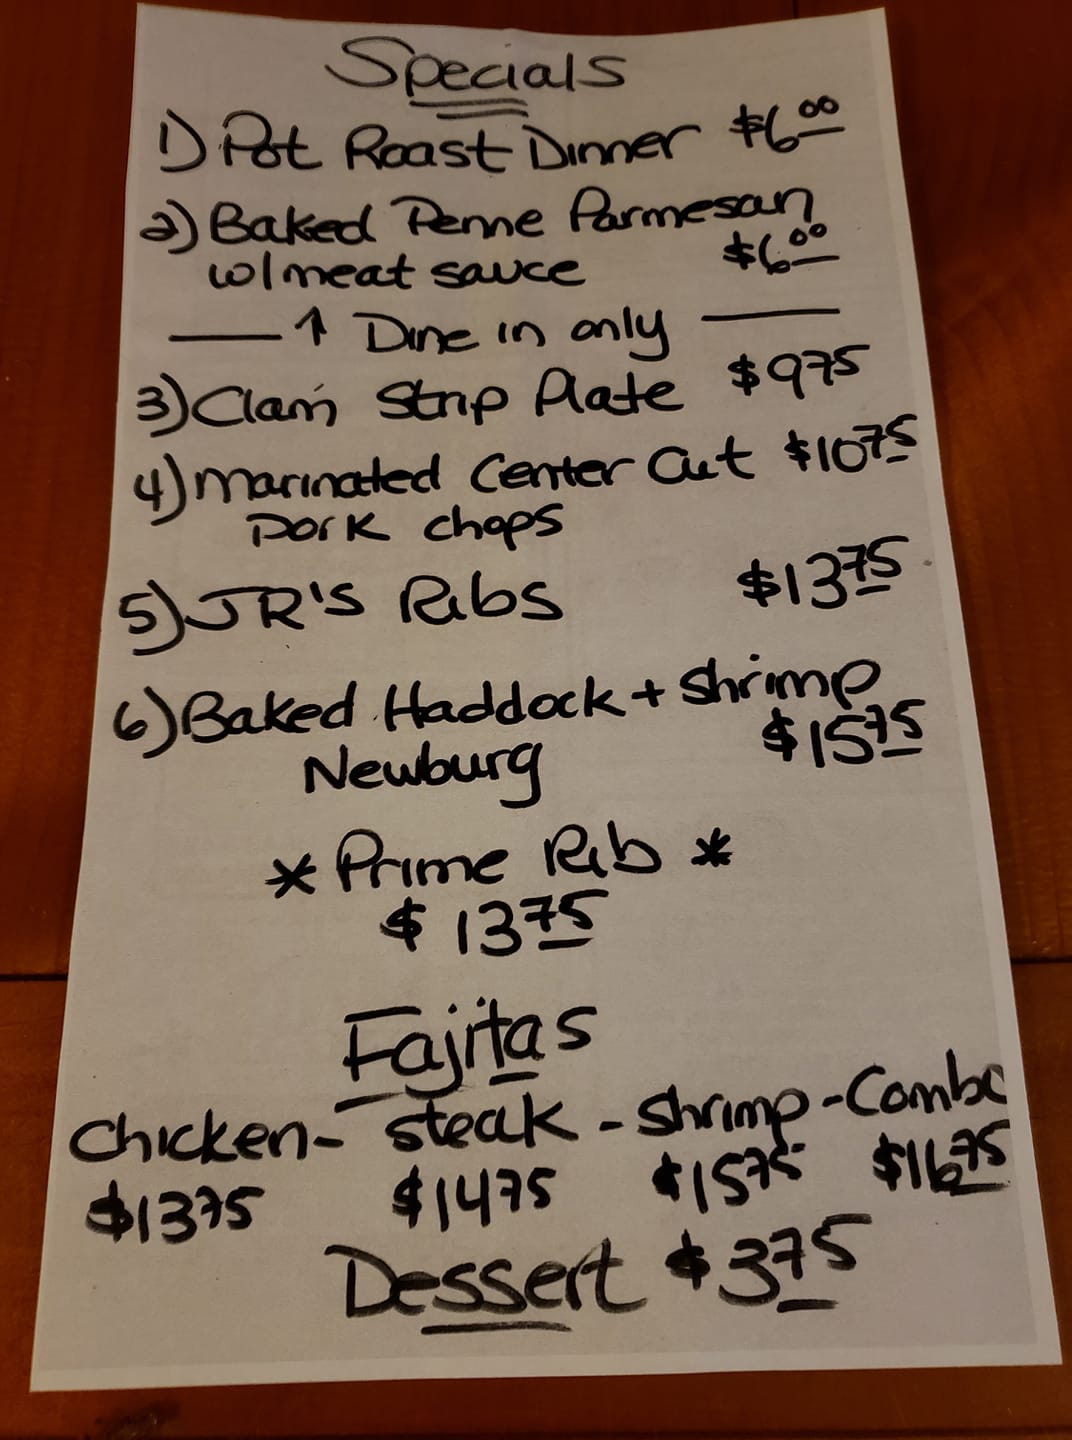 Specials
1) Pot Roast Dinner $6.00
2) Baked Penne Parmesan
w/meat sauce $6.00
↑ Dine in only
3) Clam Strip Plate $9.75
4) Marinated Center Cut $10.75
Pork chops
5) JR's Ribs $13.75
6) Baked Haddock + Shrimp
Newburg $15.75
* Prime Rib *
$13.75
Fajitas
Chicken - Steak - Shrimp - Combo
$13.75 $14.75 $15.75 $16.75
Dessert $3.75